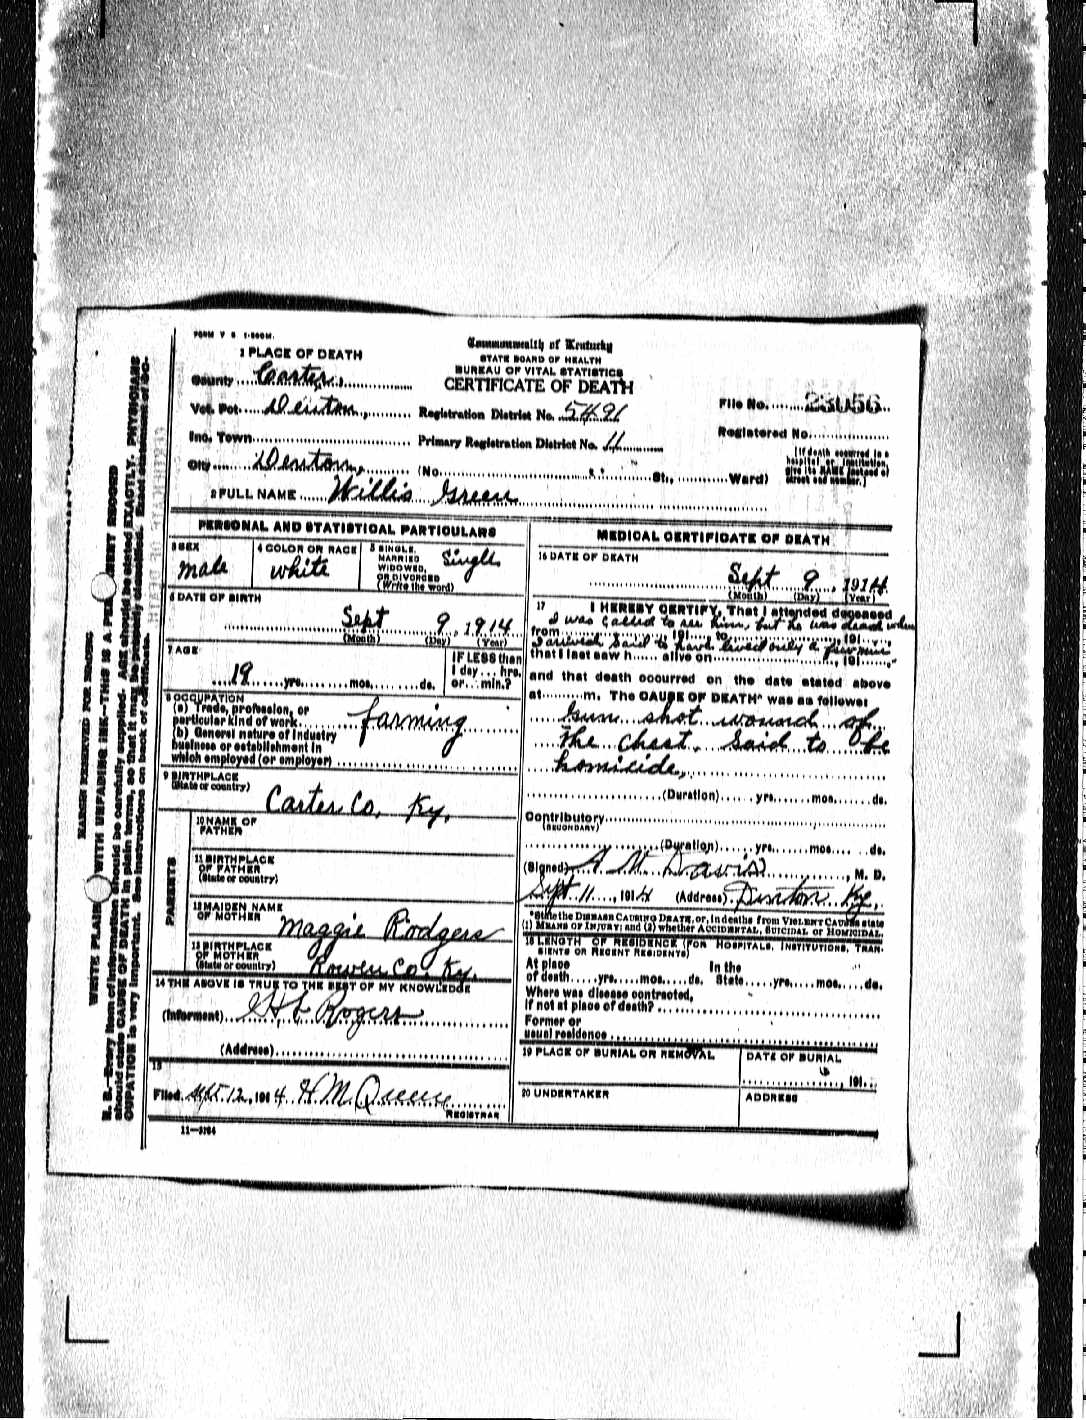 FORM V S 1-500M.
Commonwealth of Kentucky
STATE BOARD OF HEALTH
BUREAU OF VITAL STATISTICS
CERTIFICATE OF DEATH
1 PLACE OF DEATH
County Carter,
Vot. Pot. Denton, Registration District No. 5491
File No. 23056
Inc. Town Primary Registration District No. 11
Registered No.
City Denton, (No. St., Ward)
[If death occurred in a hospital or institution, give its NAME instead of street and number.]
2 FULL NAME Willis Green
PERSONAL AND STATISTICAL PARTICULARS
3 SEX
male
4 COLOR OR RACE
white
5 SINGLE, MARRIED WIDOWED, OR DIVORCED (Write the word)
Single
6 DATE OF BIRTH
Sept 9, 1914
(Month) (Day) (Year)
7 AGE
19 yrs. mos. ds.
IF LESS than 1 day ... hrs. or ... min.?
8 OCCUPATION
(a) Trade, profession, or particular kind of work farming
(b) General nature of industry
business or establishment in
which employed (or employer)
9 BIRTHPLACE
(State or country)
Carter Co. Ky.
PARENTS
10 NAME OF FATHER
11 BIRTHPLACE OF FATHER
(State or country)
12 MAIDEN NAME OF MOTHER
Maggie Rodgers
13 BIRTHPLACE OF MOTHER
(State or country)
Rowen Co. Ky.
14 THE ABOVE IS TRUE TO THE BEST OF MY KNOWLEDGE
(Informant) Rogers
(Address)
15
Filed Sept. 12, 1914 H M Queen
REGISTRAR
11—3784
MEDICAL CERTIFICATE OF DEATH
16 DATE OF DEATH
Sept 9, 1914
(Month) (Day) (Year)
17 I HEREBY CERTIFY, That I attended deceased
I was called to see him, but he was dead when
from 191 to 191
I arrived Said to have lived only a few min
that I last saw h alive on , 191 ,
and that death occurred on the date stated above
at m. The CAUSE OF DEATH* was as follows:
Gun shot wound of
the chest. Said to be
homicide,
(Duration) yrs. mos. ds.
Contributory
(SECONDARY)
(Duration) yrs. mos. ds.
(Signed) Davis, M. D.
Sept 11, 1914 (Address) Denton Ky.
*State the DISEASE CAUSING DEATH, or, in deaths from VIOLENT CAUSES state
(1) MEANS OF INJURY; and (2) whether ACCIDENTAL, SUICIDAL or HOMICIDAL.
18 LENGTH OF RESIDENCE (FOR HOSPITALS, INSTITUTIONS, TRAN-
SIENTS OR RECENT RESIDENTS)
At place of death yrs. mos. ds. In the State yrs. mos. ds.
Where was disease contracted,
if not at place of death?
Former or
usual residence
19 PLACE OF BURIAL OR REMOVAL
DATE OF BURIAL
, 191
20 UNDERTAKER
ADDRESS
MARGIN RESERVED FOR BINDING
WRITE PLAINLY WITH UNFADING INK—THIS IS A PERMANENT RECORD
N. B.—Every item of information should be carefully supplied. AGE should be stated EXACTLY. PHYSICIANS
should state CAUSE OF DEATH in plain terms, so that it may be properly classified. Exact statement of OC-
CUPATION is very important. See instructions on back of certificate.